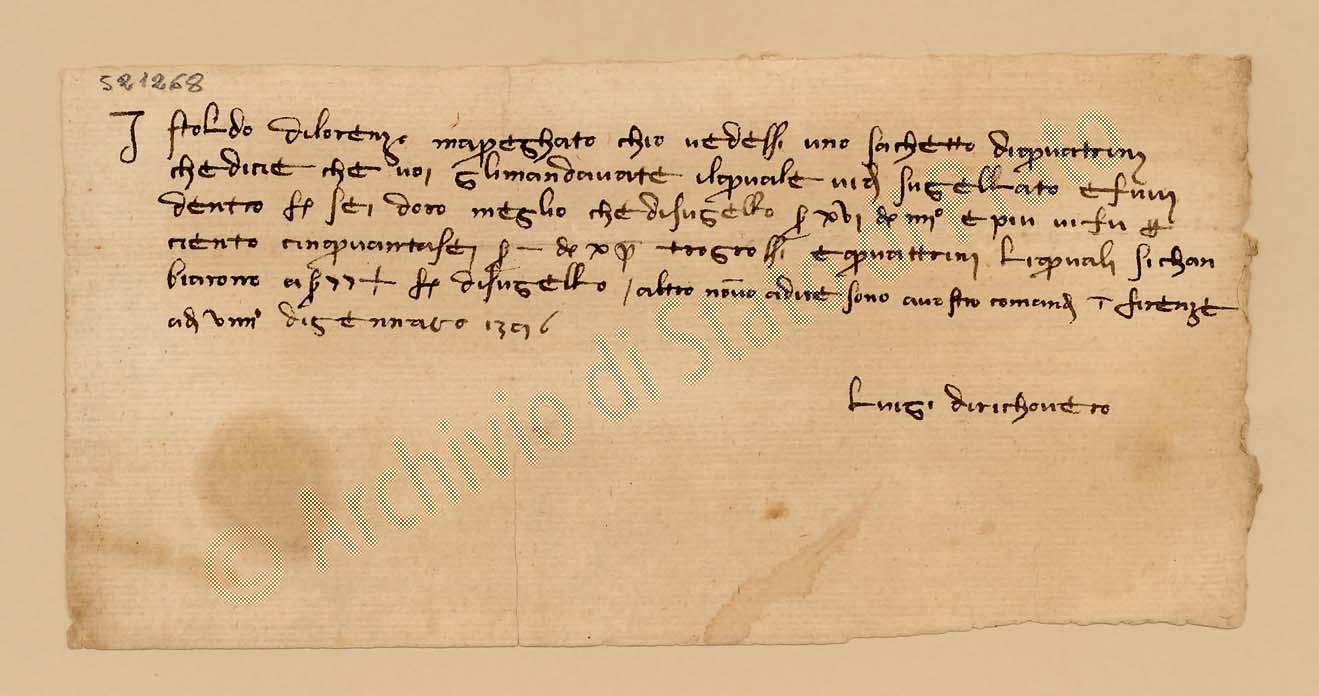 521268
Istoldo dilorenzo mapreghato chio vedessi uno sachetto diquattrini
chedicie che voi glimandavate ilquale vidi sugellato e fuvi
dentro f sei doro meglio chedisugello s xvi d iiiº e piu vi fu
ciento cinquantasei s d tra grossi e quattrini liquali sichan
biarono a s 77 f disugello / altro nonvo adire sono avostri comandi firenze
adi viiii digennaio 1396
Luigi dirichovero
© Archivio di Stato di Prato